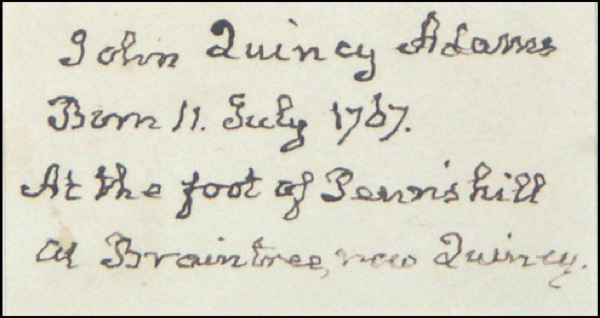 John Quincy Adams
Born 11. July 1767.
At the foot of Penn's hill
at Braintree, now Quincy.